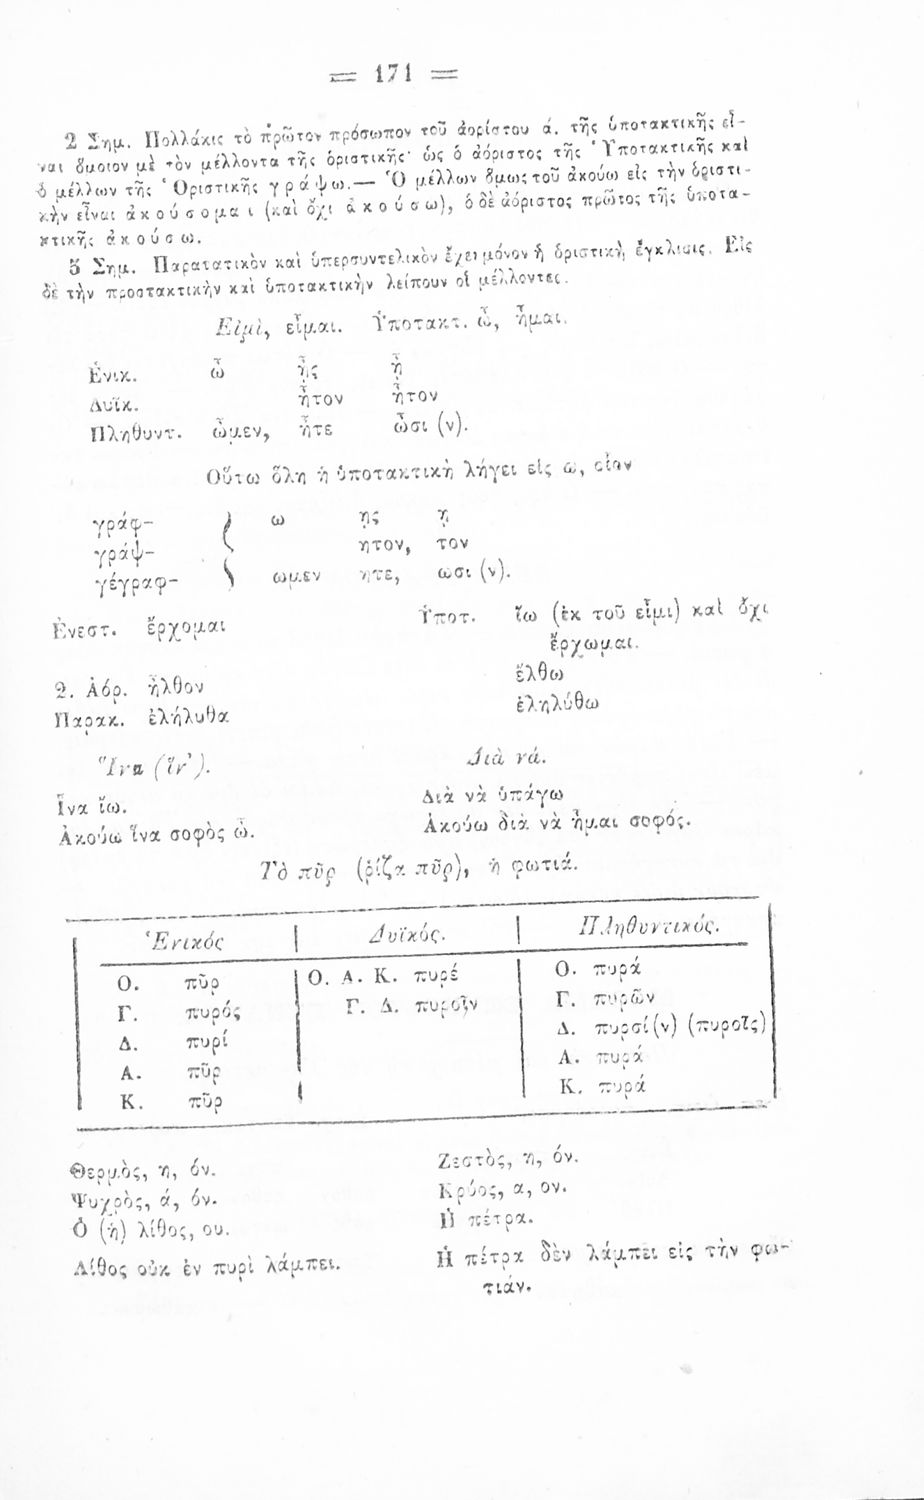 = 171 =
2 Σημ. Πολλάκις τὸ πρῶτον πρόσωπον τοῦ ἀορίστου ά. τῆς ὑποτακτικῆς εἶ-
ναι ὅμοιον μὲ τὸν μέλλοντα τῆς ὁριστικῆς· ὡς ὁ ἀόριστος τῆς Ὑποτακτικῆς καὶ
ὁ μέλλων τῆς Ὁριστικῆς γράψω.— Ὁ μέλλων ὅμως τοῦ ἀκούω εἰς τὴν ὁριστι-
κὴν εἶναι ἀκούσομαι (καὶ ὄχι ἀκούσω), ὁ δὲ ἀόριστος πρῶτος τῆς ὑποτα-
κτικῆς ἀκούσω.
3 Σημ. Παρατατικὸν καὶ ὑπερσυντελικὸν ἔχει μόνον ἡ ὁριστικὴ ἔγκλισις. Εἰς
δὲ τὴν προστακτικὴν καὶ ὑποτακτικὴν λείπουν οἱ μέλλοντες.
Εἰμὶ, εἶμαι. Ὑποτακτ. ὦ, ἦμαι.
Ἑνικ. ὦ ᾖς ᾖ
Δυϊκ. ἦτον ἦτον
Πληθυντ. ὦμεν, ἦτε ὦσι (ν).
Οὕτω ὅλη ἡ ὑποτακτικὴ λήγει εἰς ω, οἷον
γράφ- ω ῃς ῃ
γράψ- ητον, τον
γέγραφ- ωμεν ητε, ωσι (ν).
Ἐνεστ. ἔρχομαι Ὑποτ. ἴω (ἐκ τοῦ εἶμι) καὶ ὄχι
ἔρχωμαι.
2. Ἀόρ. ἦλθον ἔλθω
Παρακ. ἐλήλυθα ἐληλύθω
Ἵνα (ἵν'). Διὰ νά.
Ἵνα ἴω. Διὰ νὰ ὑπάγω
Ἀκούω ἵνα σοφὸς ὦ. Ἀκούω διὰ νὰ ἦμαι σοφός.
Τὸ πῦρ (ῥίζα πῦρ), ἡ φωτιά.
Ἑνικός Δυϊκός. Πληθυντικός.
Ο. πῦρ Ο. Α. Κ. πυρέ Ο. πυρά
Γ. πυρός Γ. Δ. πυροῖν Γ. πυρῶν
Δ. πυρί Δ. πυρσί(ν) (πυροῖς)
Α. πῦρ Α. πυρά
Κ. πῦρ Κ. πυρά
Θερμὸς, η, όν. Ζεστὸς, η, όν.
Ψυχρὸς, ά, όν. Κρύος, α, ον.
Ὁ (ἡ) λίθος, ου. Ἡ πέτρα.
Λίθος οὐκ ἐν πυρὶ λάμπει. Ἡ πέτρα δὲν λάμπει εἰς τὴν φω-
τιάν.